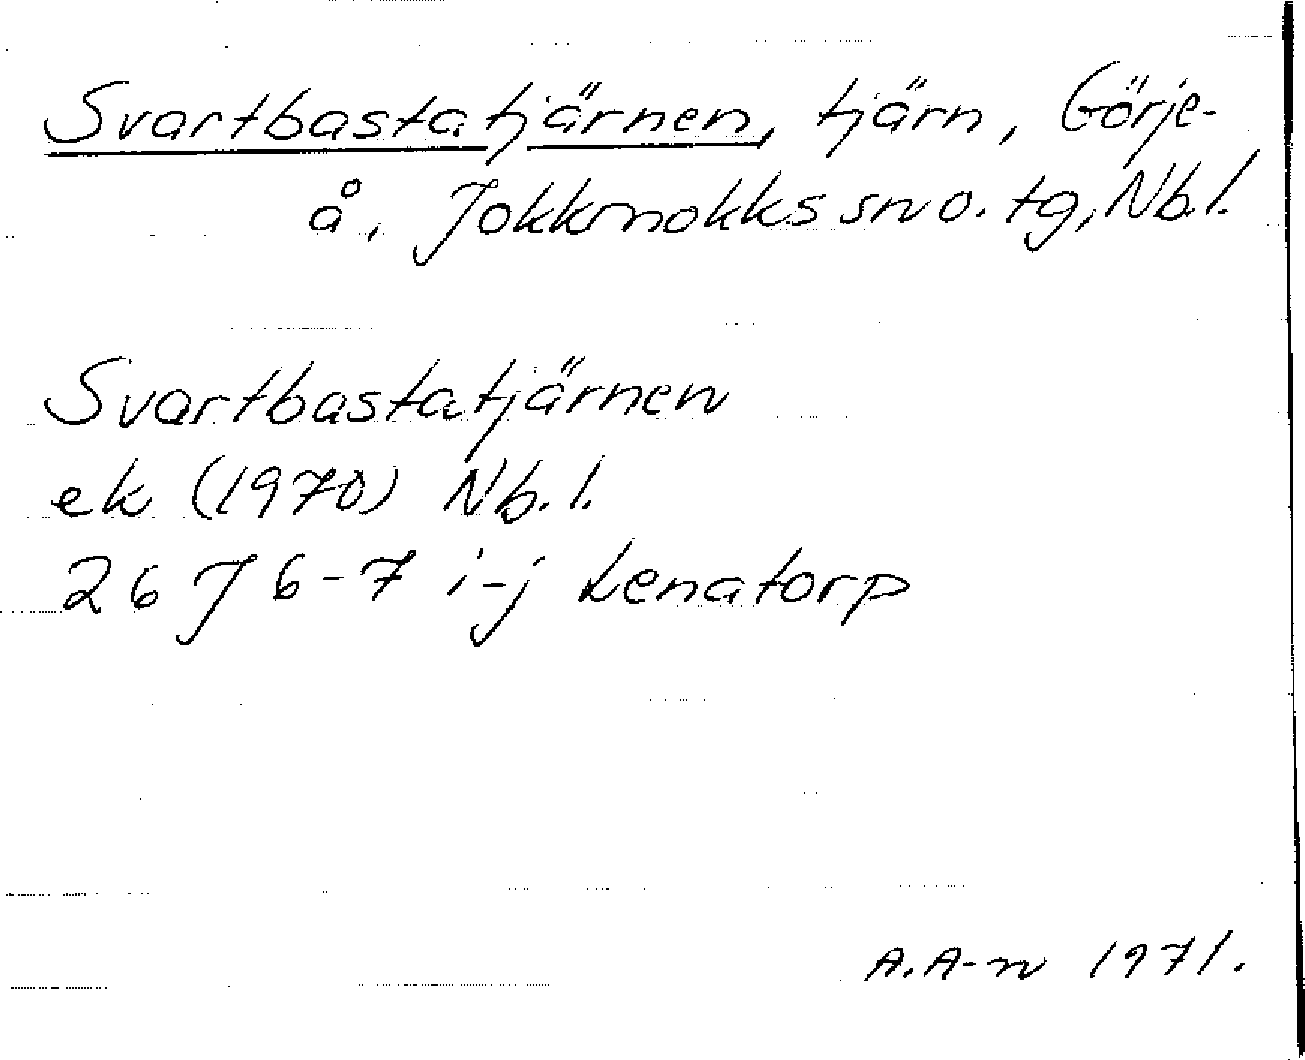 Svartbastatjärnen, tjärn, Görje-
å, Jokkmokks sn o. tg, Nb.l.
Svartbastatjärnen
ek (1970) Nb.l.
26 J 6-7 i-j Lenatorp
A.A-n 1971.